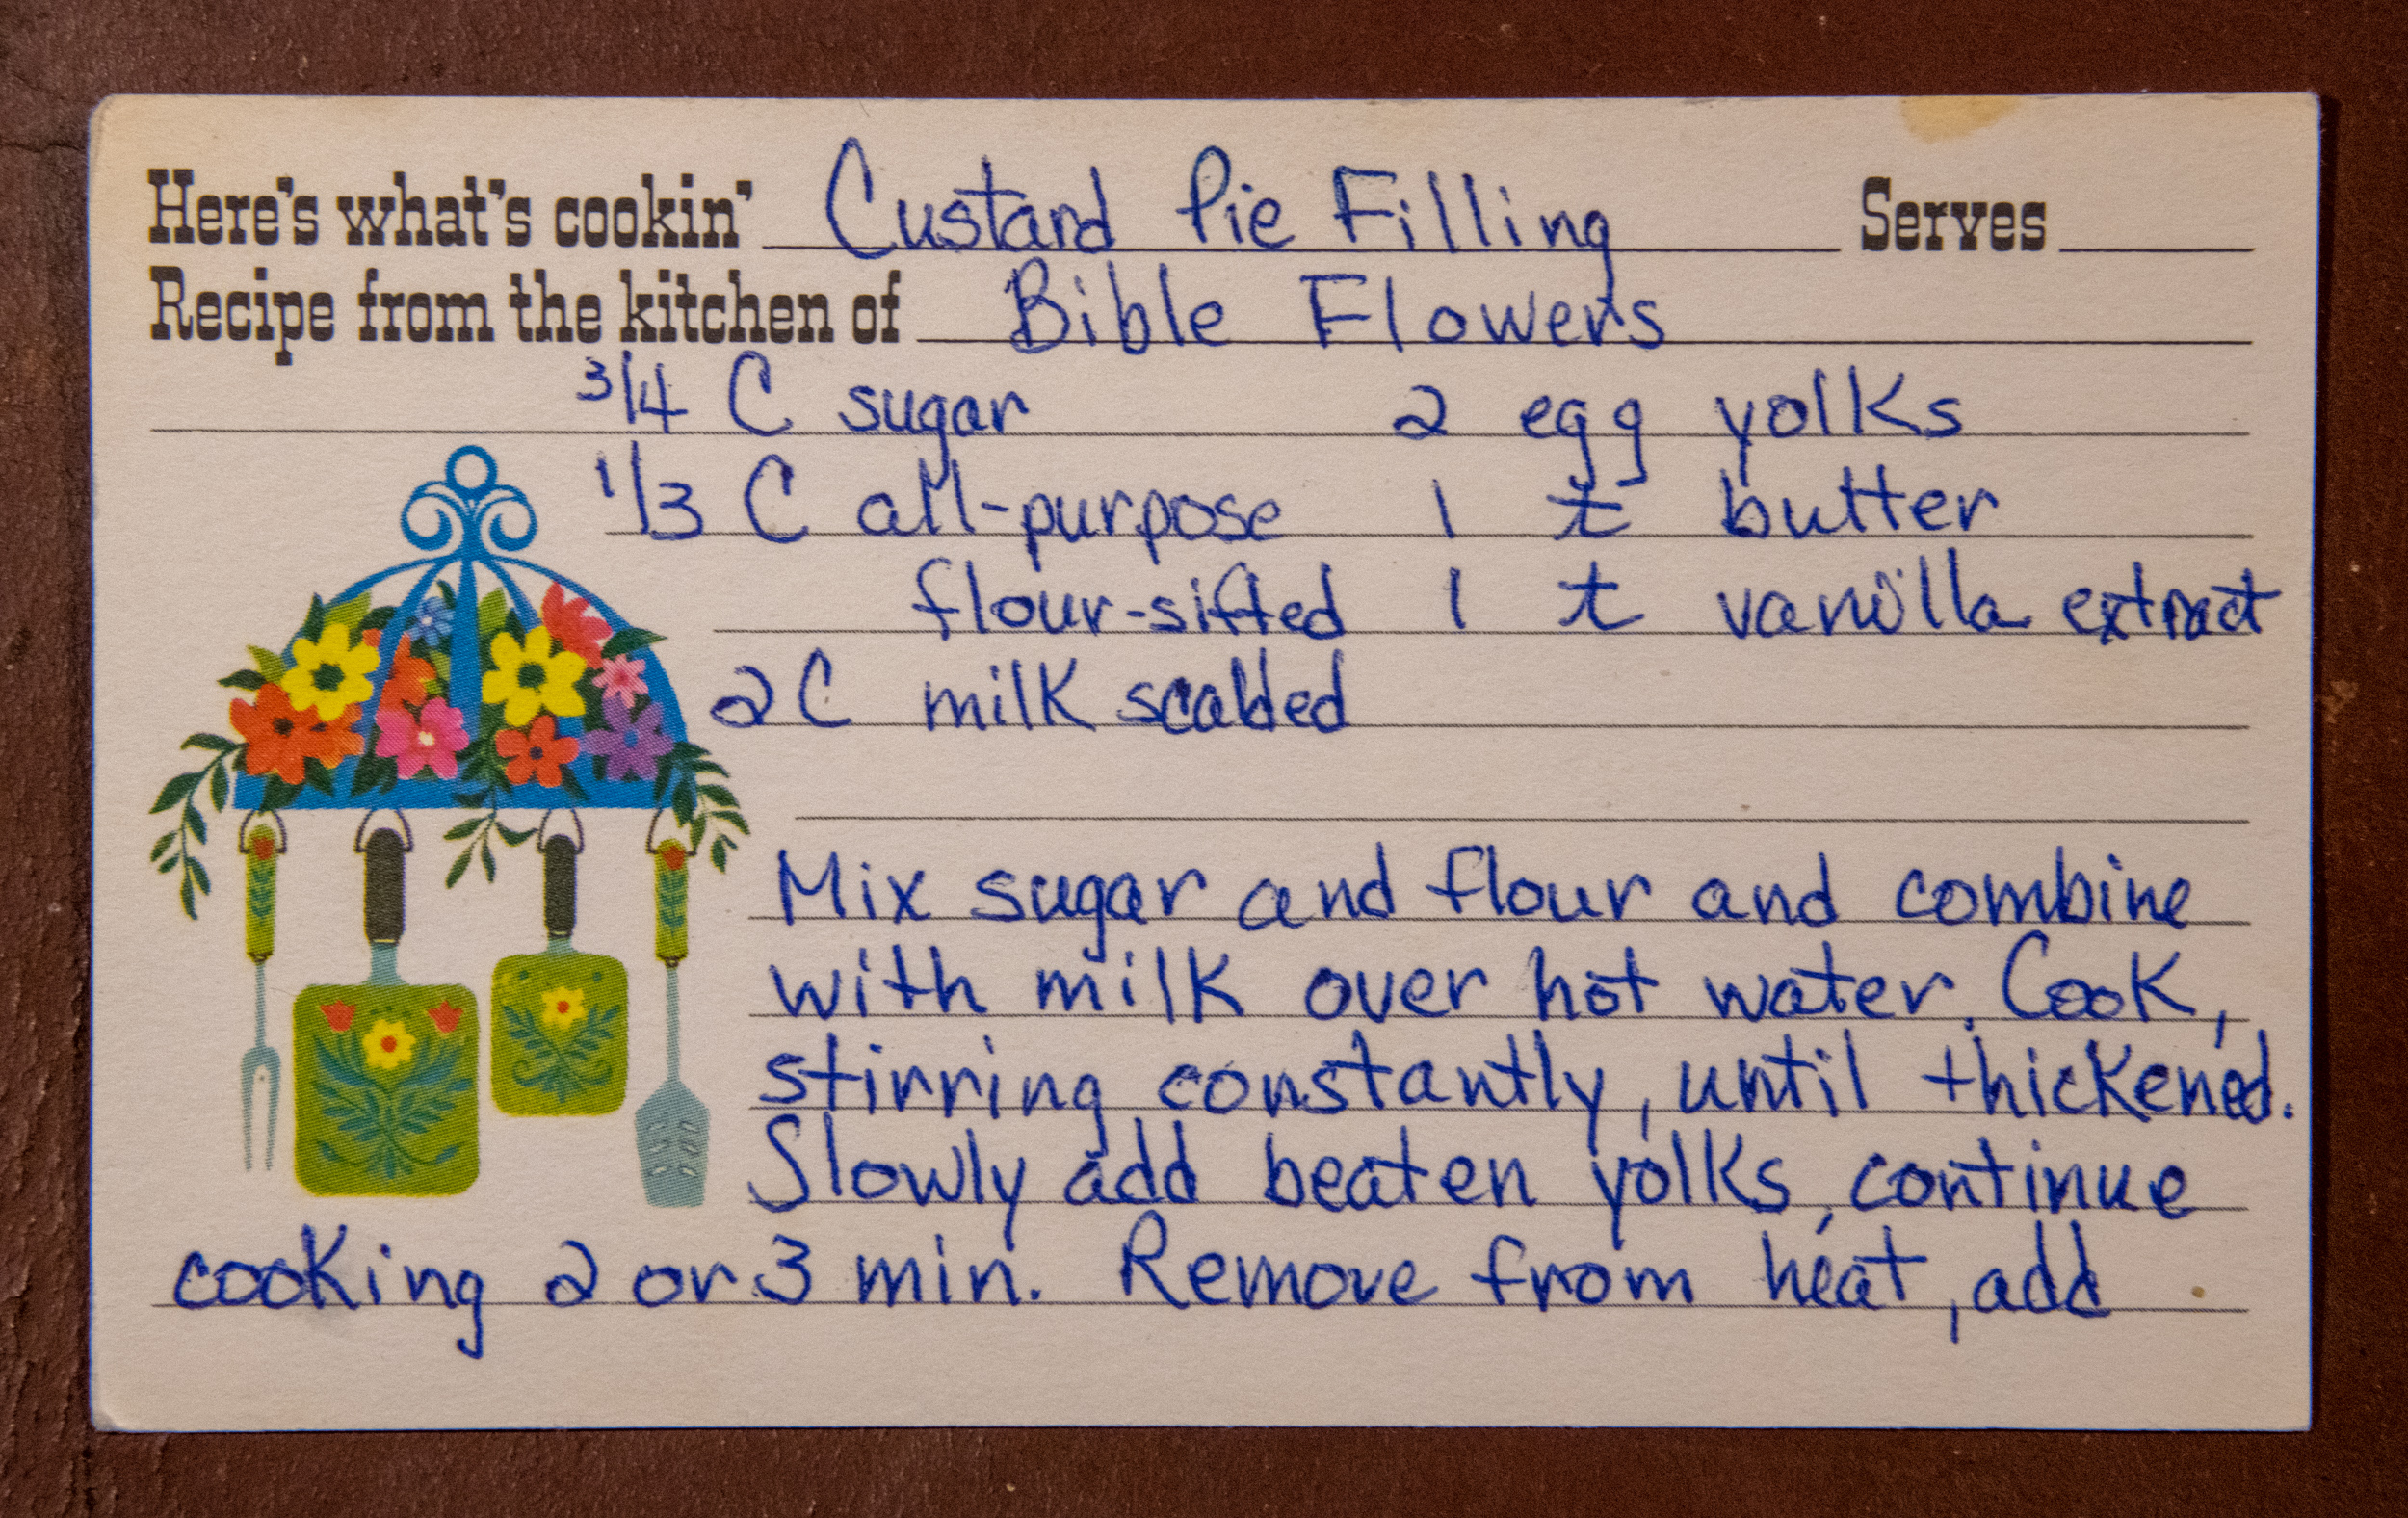 Here's what's cookin' Custard Pie Filling Serves
Recipe from the kitchen of Bible Flowers
3/4 C sugar 2 egg yolks
1/3 C all-purpose 1 t butter
flour-sifted 1 t vanilla extract
2 C milk scalded
Mix sugar and flour and combine
with milk over hot water. Cook,
stirring constantly, until thickened.
Slowly add beaten yolks, continue
cooking 2 or 3 min. Remove from heat, add